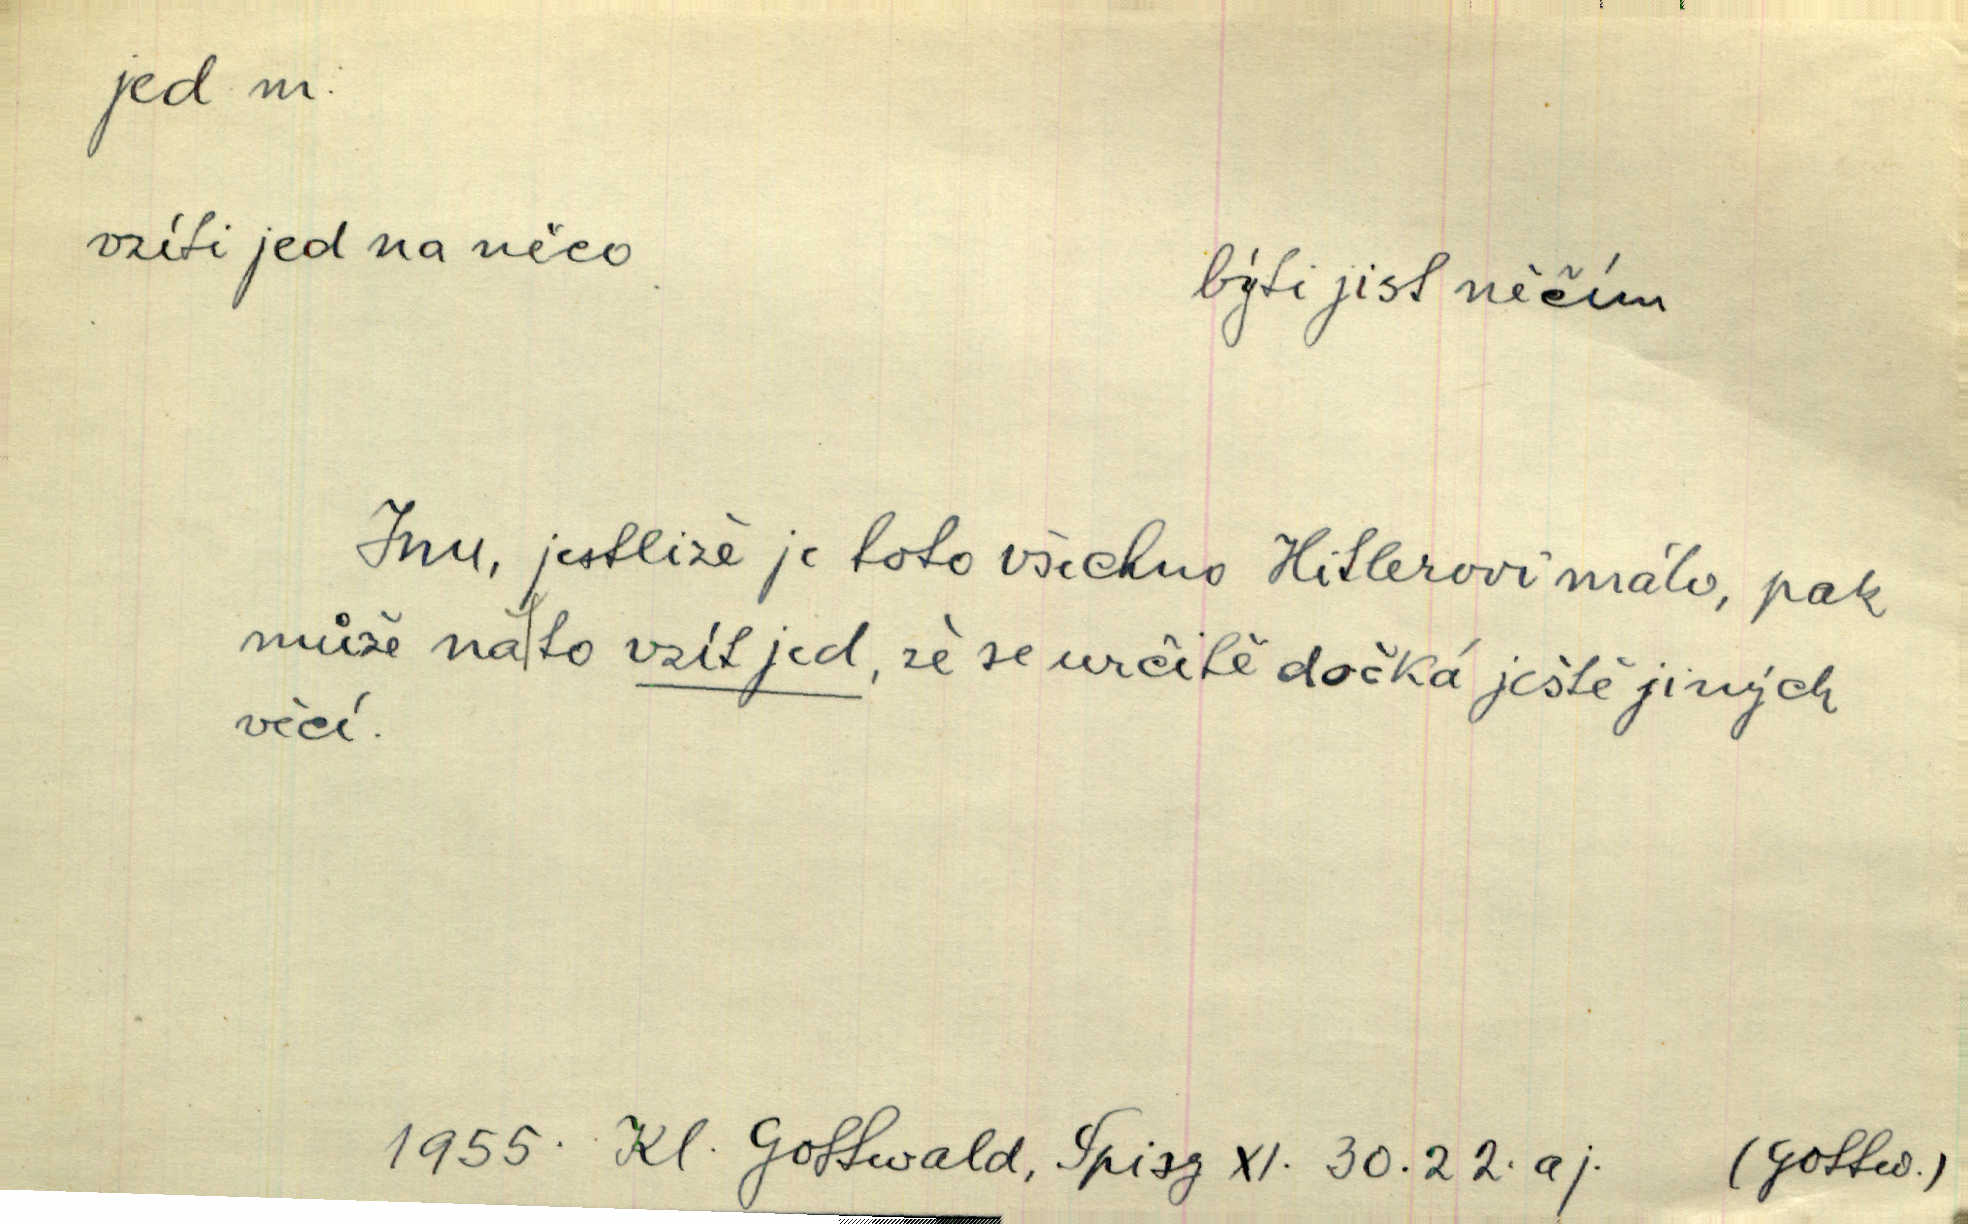 jed m.
vzíti jed na něco
býti jist něčím
Inu, jestliže je toto všechno Hitlerovi málo, pak
může na to vzít jed, že se určitě dočká ještě jiných
věcí.
1955. Kl. Gottwald, Spisy XI. 30.22. aj. (Gottw.)